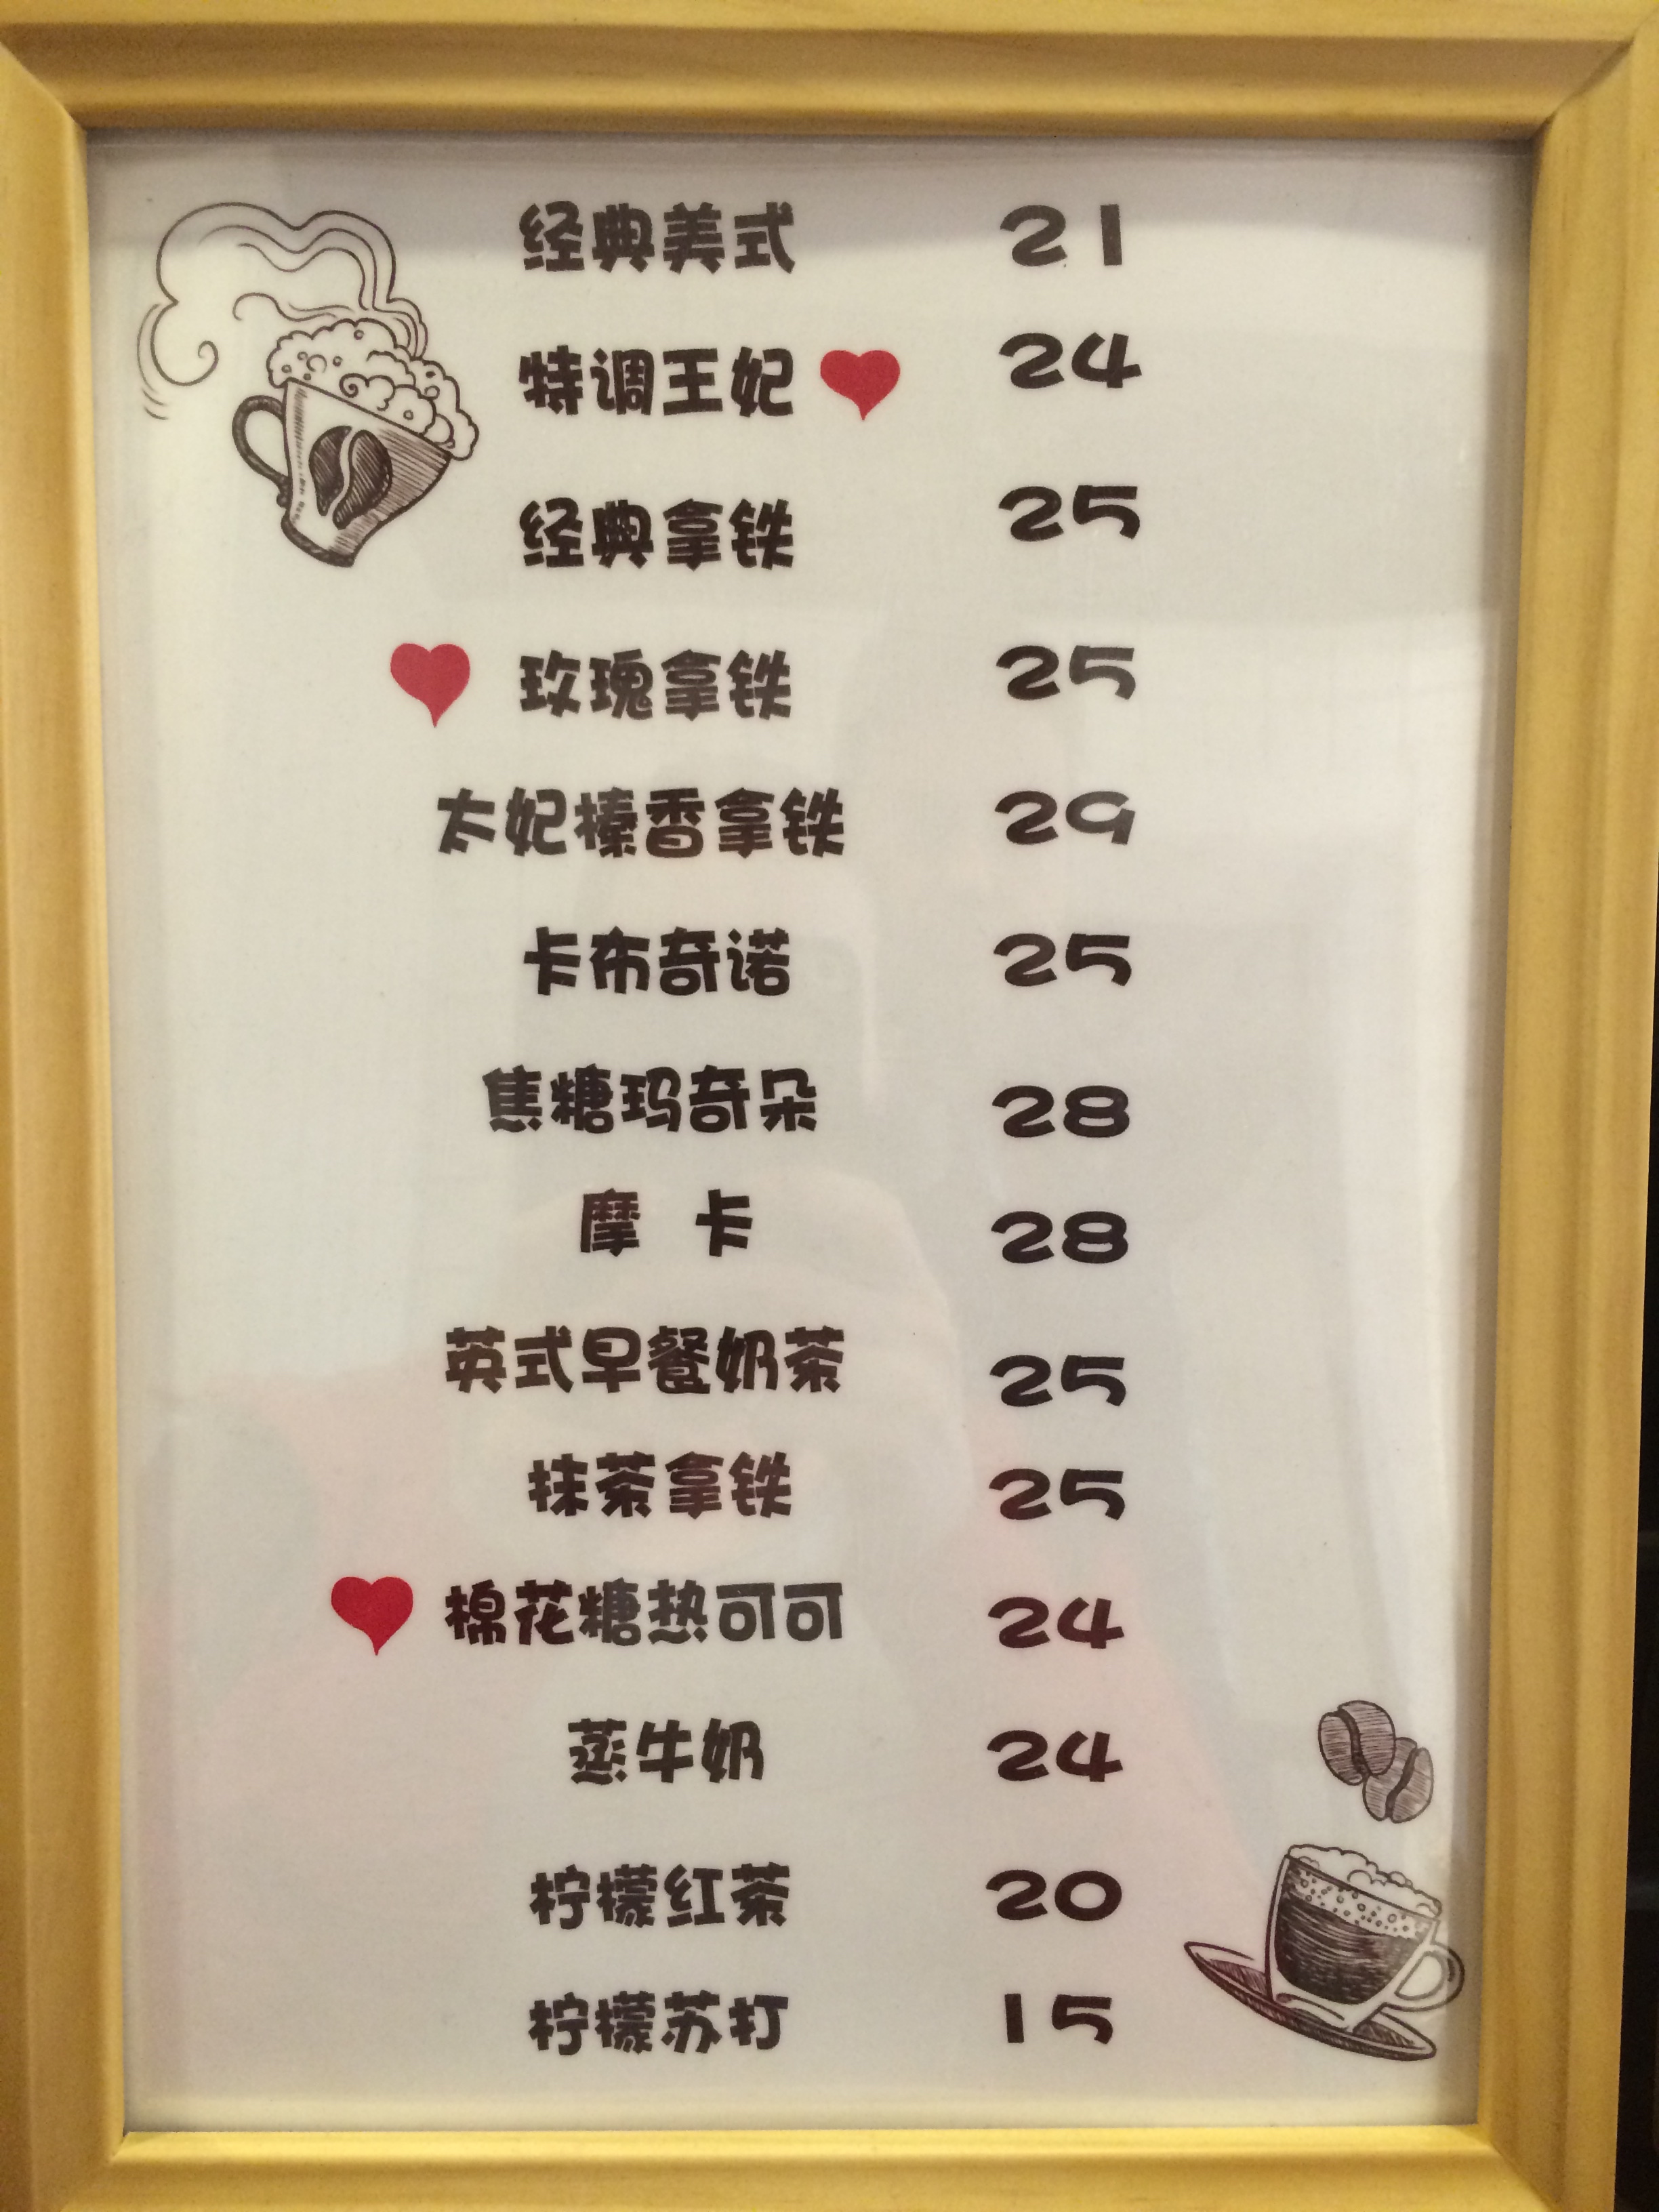 经典美式 21
特调王妃 24
经典拿铁 25
玫瑰拿铁 25
太妃榛香拿铁 29
卡布奇诺 25
焦糖玛奇朵 28
摩 卡 28
英式早餐奶茶 25
抹茶拿铁 25
棉花糖热可可 24
蒸牛奶 24
柠檬红茶 20
柠檬苏打 15